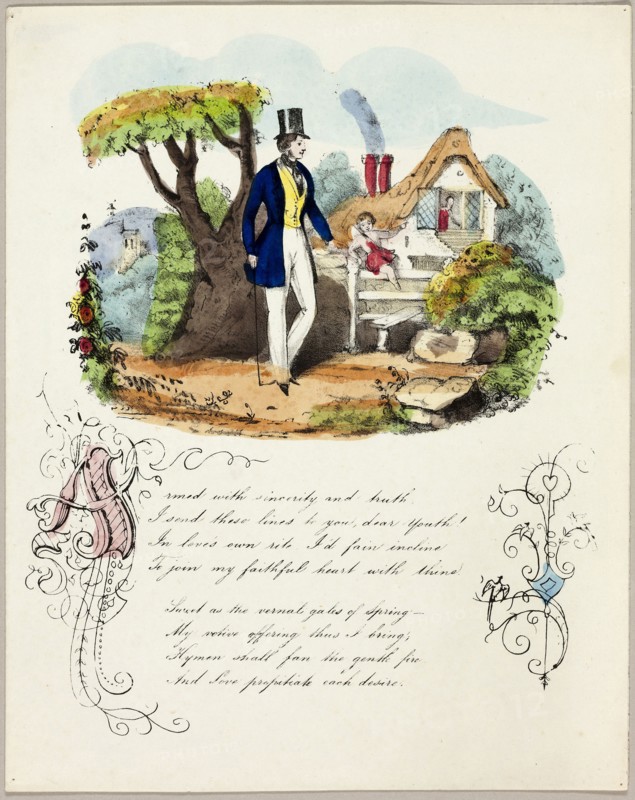 Armed with sincerity and truth
I send these lines to you, dear Youth!
In loves own rite I'd fain incline
To join my faithful heart with thine
Sweet as the vernal gales of Spring—
My votive offering thus I bring;
Hymen shall fan the gentle fire
And Love propitiate each desire.